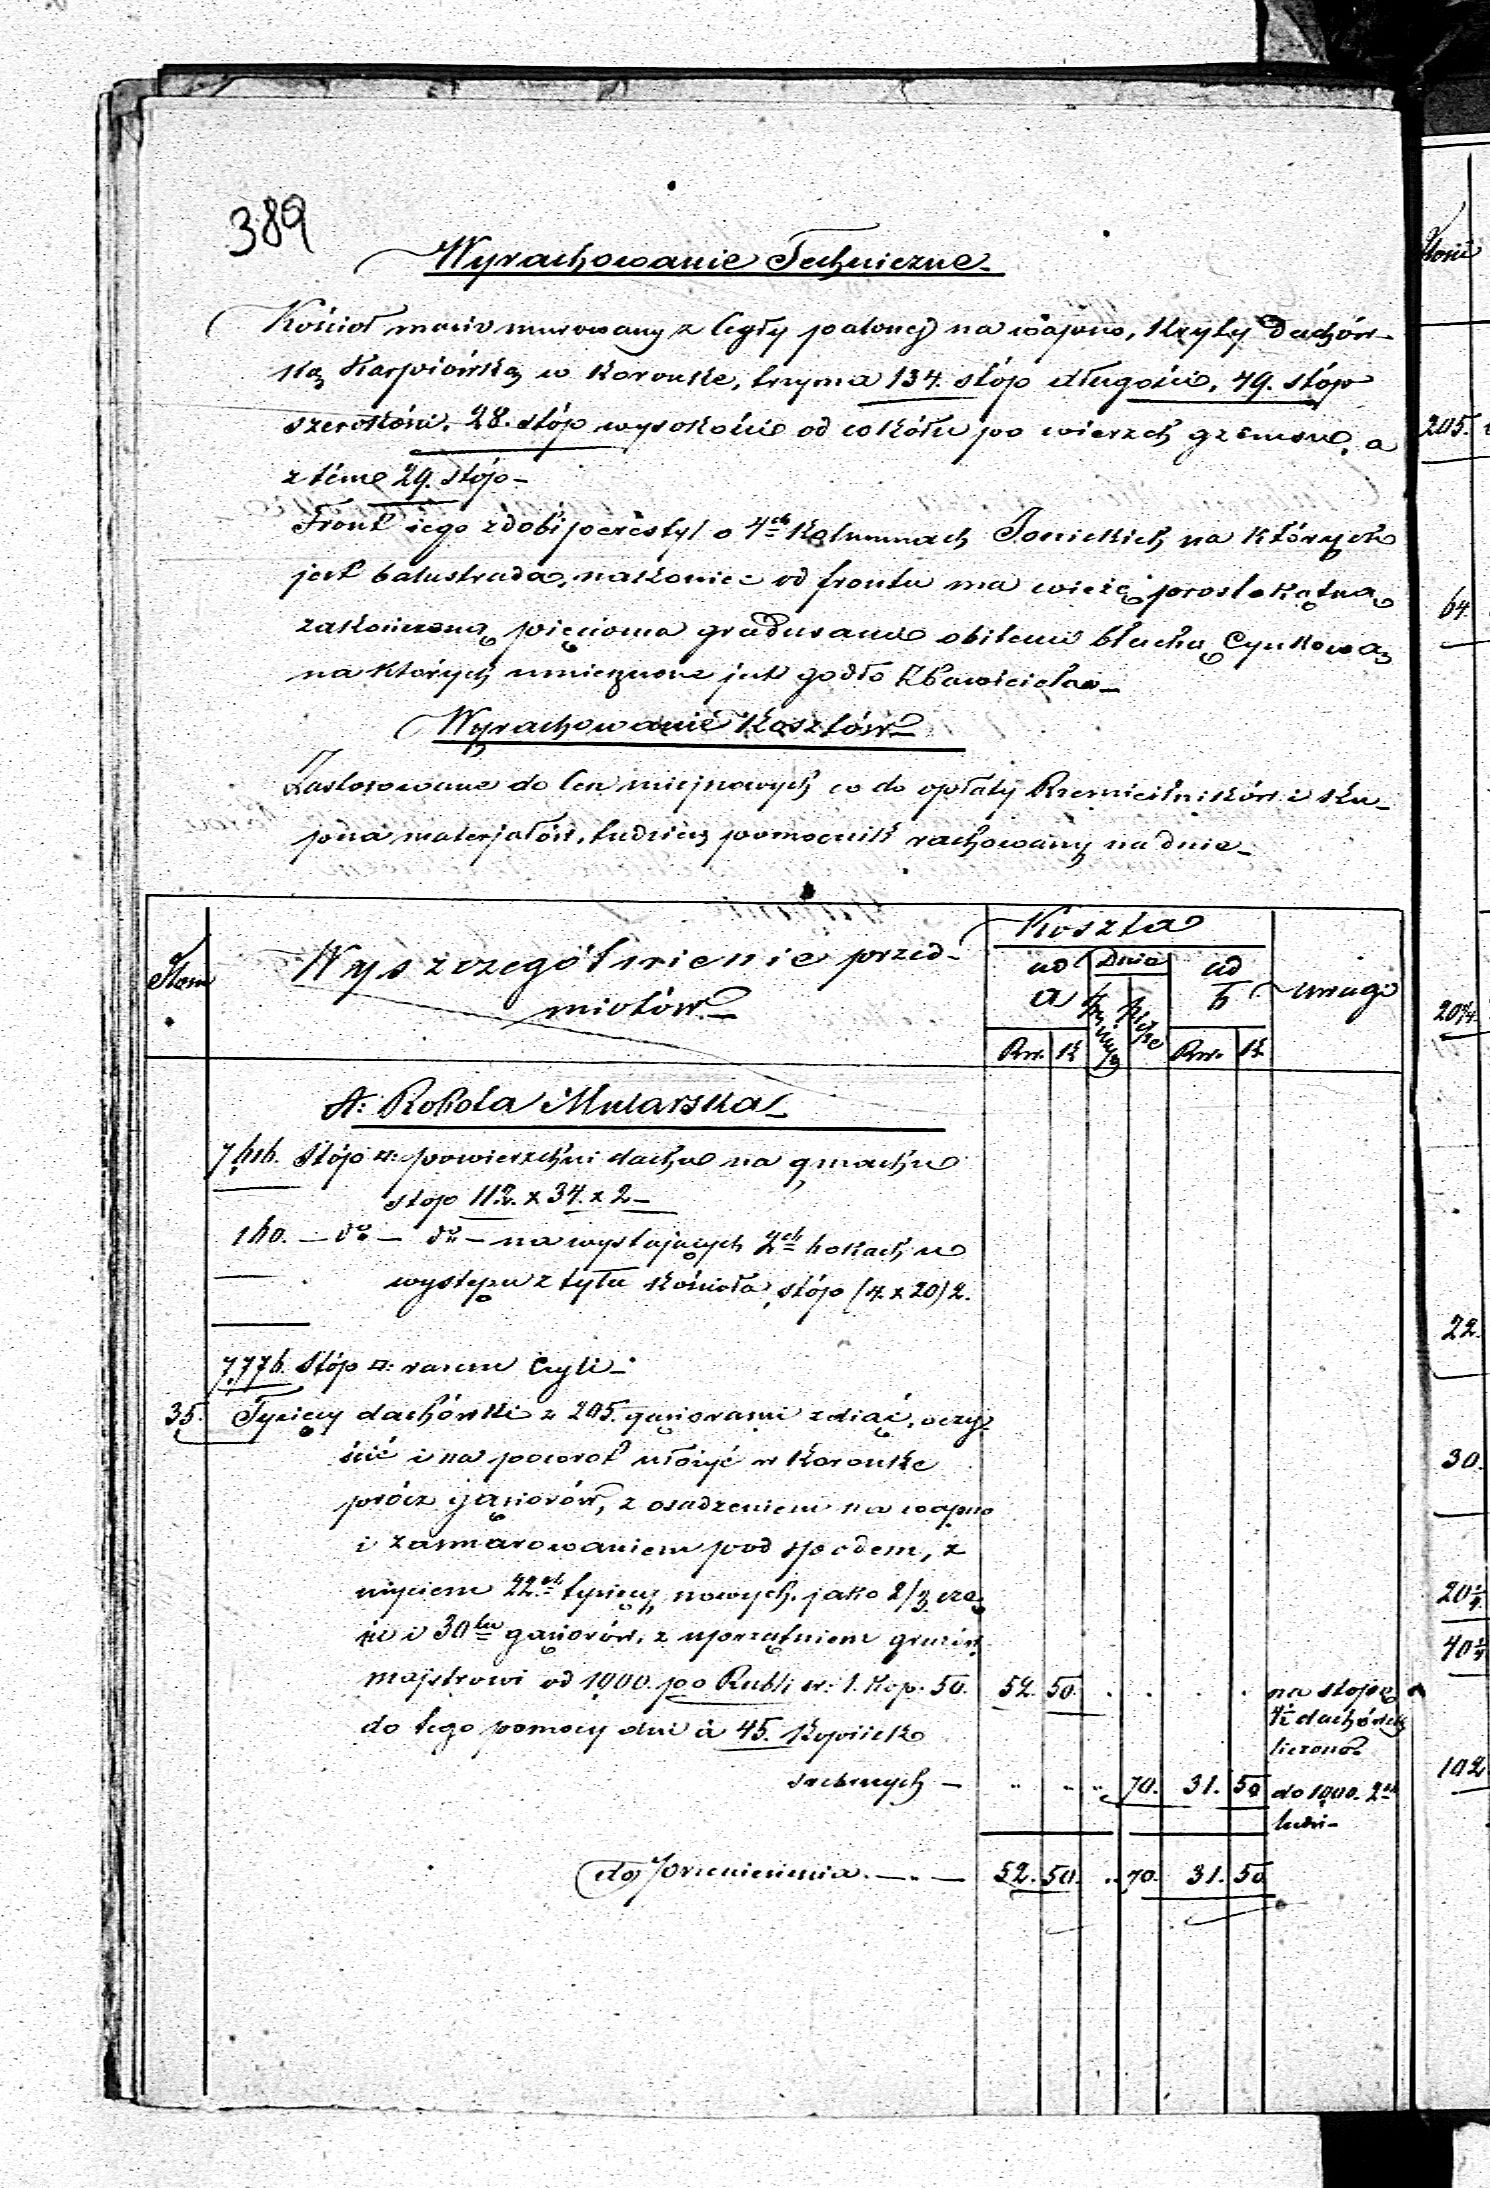 389
Wyrachowanie Techniczne
Kościoł massiv murowany z Cegły paloney na wapno, Kryty Dachów-
ką Karpiówką w Koronke, trzyma 134. stóp długości, 49. stóp
szerokości, 28. stóp wysokości od cokółu po wierzch gzemsu, a
z téme 29. stóp-
Front iego zdobi perestyl o 4ch Kolumnach Jonickich, na których
jest balustrada, nakoniec od frontu ma wieżę prostokątną
zakończoną pięcioma gradusami obitemi blachą Cynkową
na których umieszczone jest godło Zbawiciela-
Wyrachowanie Kosztów
Zastosowane do Cen miejscowych co do opłaty Rzemieślników i sku-
pna materjałów, tudzież pomocnik rachowany na dnie-
Koszta
Wyszczególnienie przed-
miotów
ad a
Dnie
ad b
uwagi
Rsr. K
Rsr. K.
A: Robota Mularska
7,616. Stóp □: powierzchni dachu na gmachu
stop 112. x 34. x 2-
160. - do - do - na wystających 2ch bokach u
występu z tyłu Kościoła, stóp (4 x 20) 2.
7,776. Stóp □: razem Czyli-
35. Tysięcy dachówki z 205. gąsiorami zdiąć, oczy-
ścić i na powrot ułożyć w Koronke
prócz gąsiorów, z osadzeniem na wapno
i zasmarowaniem pod spodem, z
użyciem 22ch tysięcy nowych. jako 2/3 czę
ści i 30tu gąsiorów, z uprzątniem gruzów
majstrowi od 1000. po Rubli sr: 1. Kop. 50. 52. 50. na stopę
4½ dachówek
liczono
do tego pomocy dni à 45. Kopiiek
srebrnych - 70. 31. 50 do 1000. 2ch
ludzi-
do Przeniesienia. - . - 52. 50. 70. 31. 50
205.
64.
20¼.
22.
30.
20¼
40¼
102